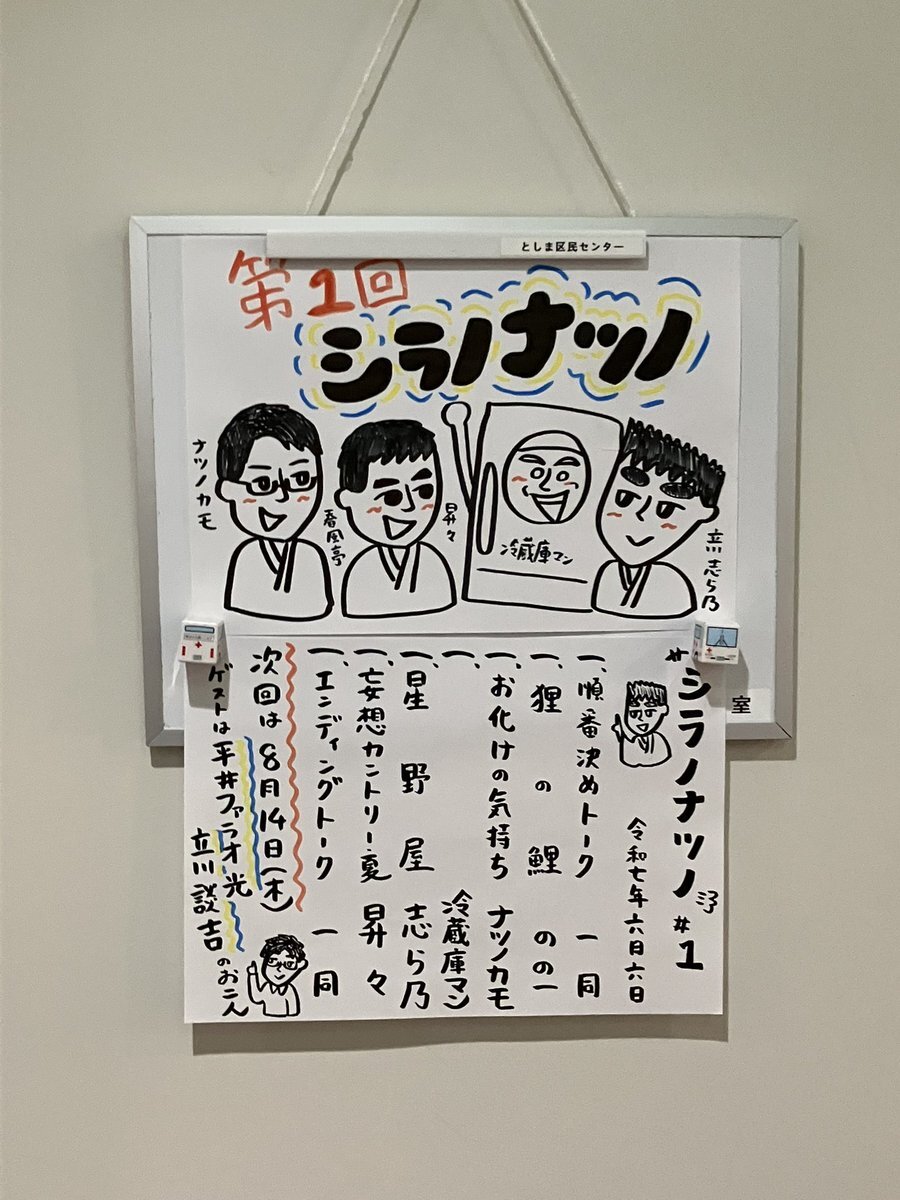 としま区民センター
第1回
シラノナツノ
ナツノカモ
春風亭
昇々
冷蔵庫マン
立川志ら乃
室
シラノナツノ #1
令和七年六日六日
一、順番決めトーク 一同
一、狸の鯉 のの一
一、お化けの気持ち ナツノカモ
一、 冷蔵庫マン
一、星野屋 志ら乃
一、妄想カントリー・夏 昇々
一、エンディングトーク 一同
次回は8月14日(木)
ゲストは平井ファラオ光
立川談吉のお二人